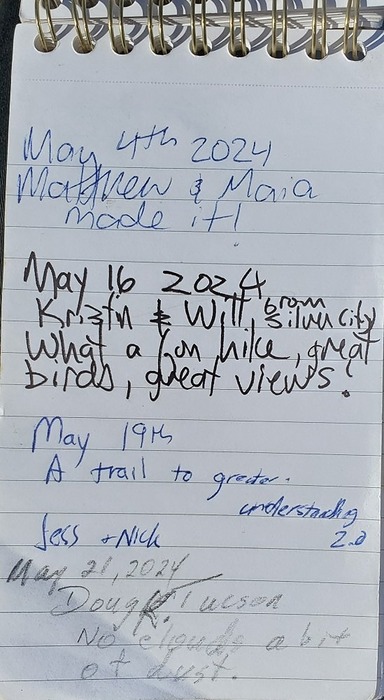 May 4th 2024
Matthew & Maia
made it!
May 16 2024
Kristin & Will from Silver City
What a fun hike, great
birds, great views.
May 19th
A trail to greater
understanding
2.0
Jess + Nick
May 21, 2024
Doug K. Tucson
No clouds a bit
of dust.